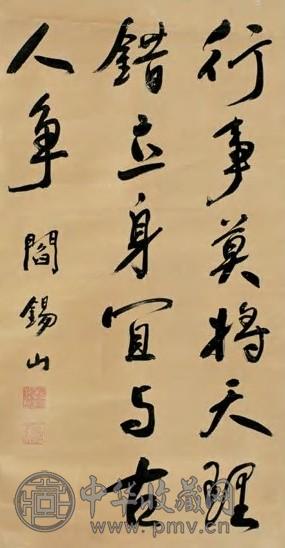 行事莫将天理
錯立身宜与古
人争 閻錫山
中华收藏网
www.pmv.cn